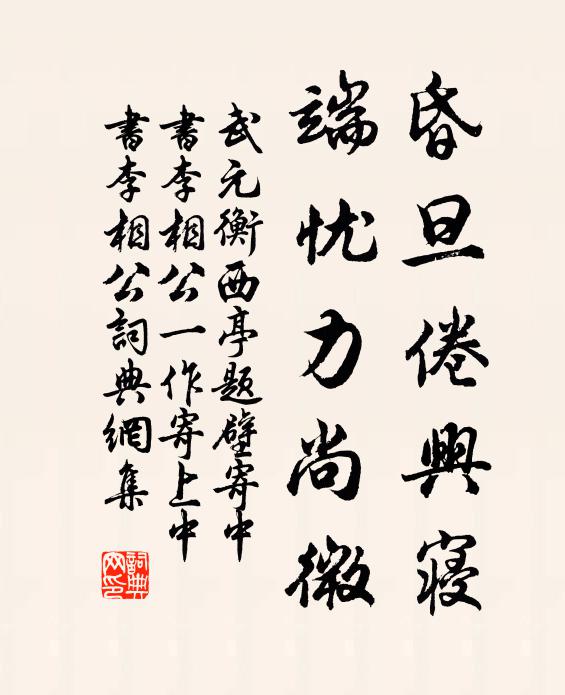 昏旦倦興寝
端忧力尚微
武元衡西亭題壁寄中
書李相公一作寄上中
書李相公詞典網集
詞典网印